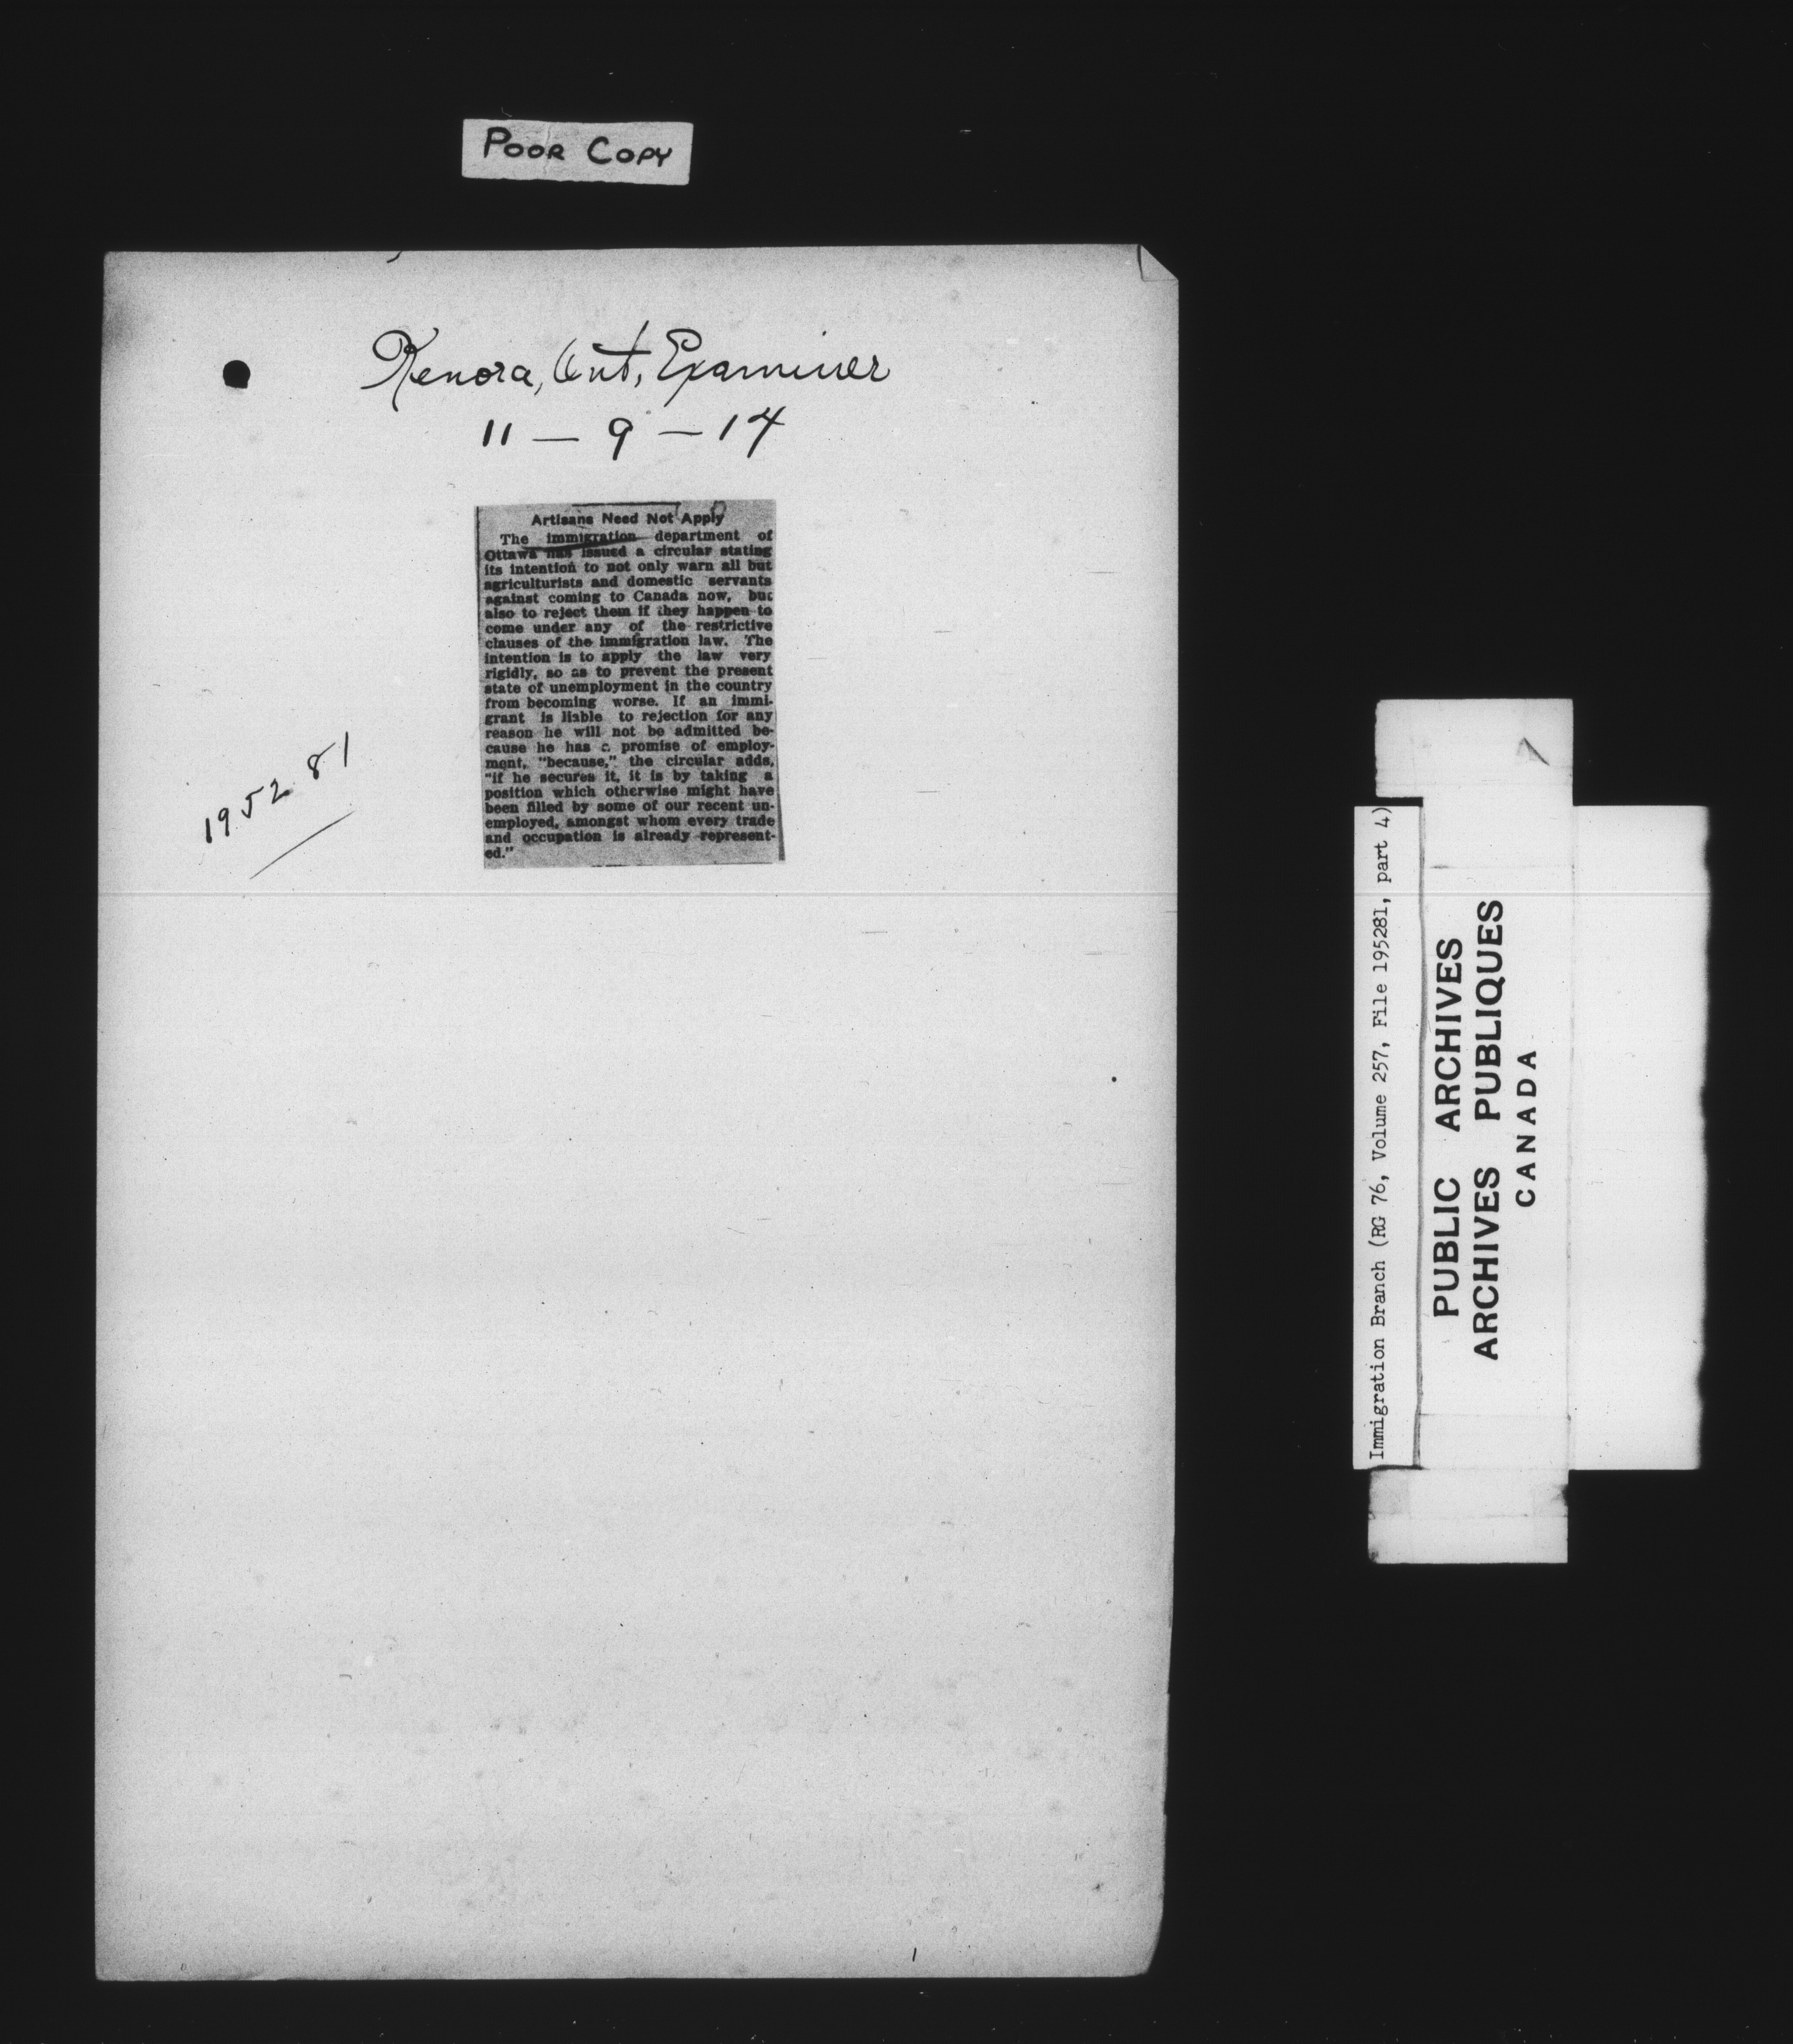 POOR COPY
Kenora, Ont, Examiner
11 — 9 — 14
Artisans Need Not Apply
The immigration department of
Ottawa has issued a circular stating
its intention to not only warn all but
agriculturists and domestic servants
against coming to Canada now, but
also to reject them if they happen to
come under any of the restrictive
clauses of the immigration law. The
intention is to apply the law very
rigidly, so as to prevent the present
state of unemployment in the country
from becoming worse. If an immi-
grant is liable to rejection for any
reason he will not be admitted be-
cause he has a promise of employ-
ment, "because," the circular adds,
"if he secures it, it is by taking a
position which otherwise might have
been filled by some of our recent un-
employed, amongst whom every trade
and occupation is already represent-
ed."
195281
Immigration Branch (RG 76, Volume 257, File 195281, part 4)
PUBLIC ARCHIVES
ARCHIVES PUBLIQUES
CANADA